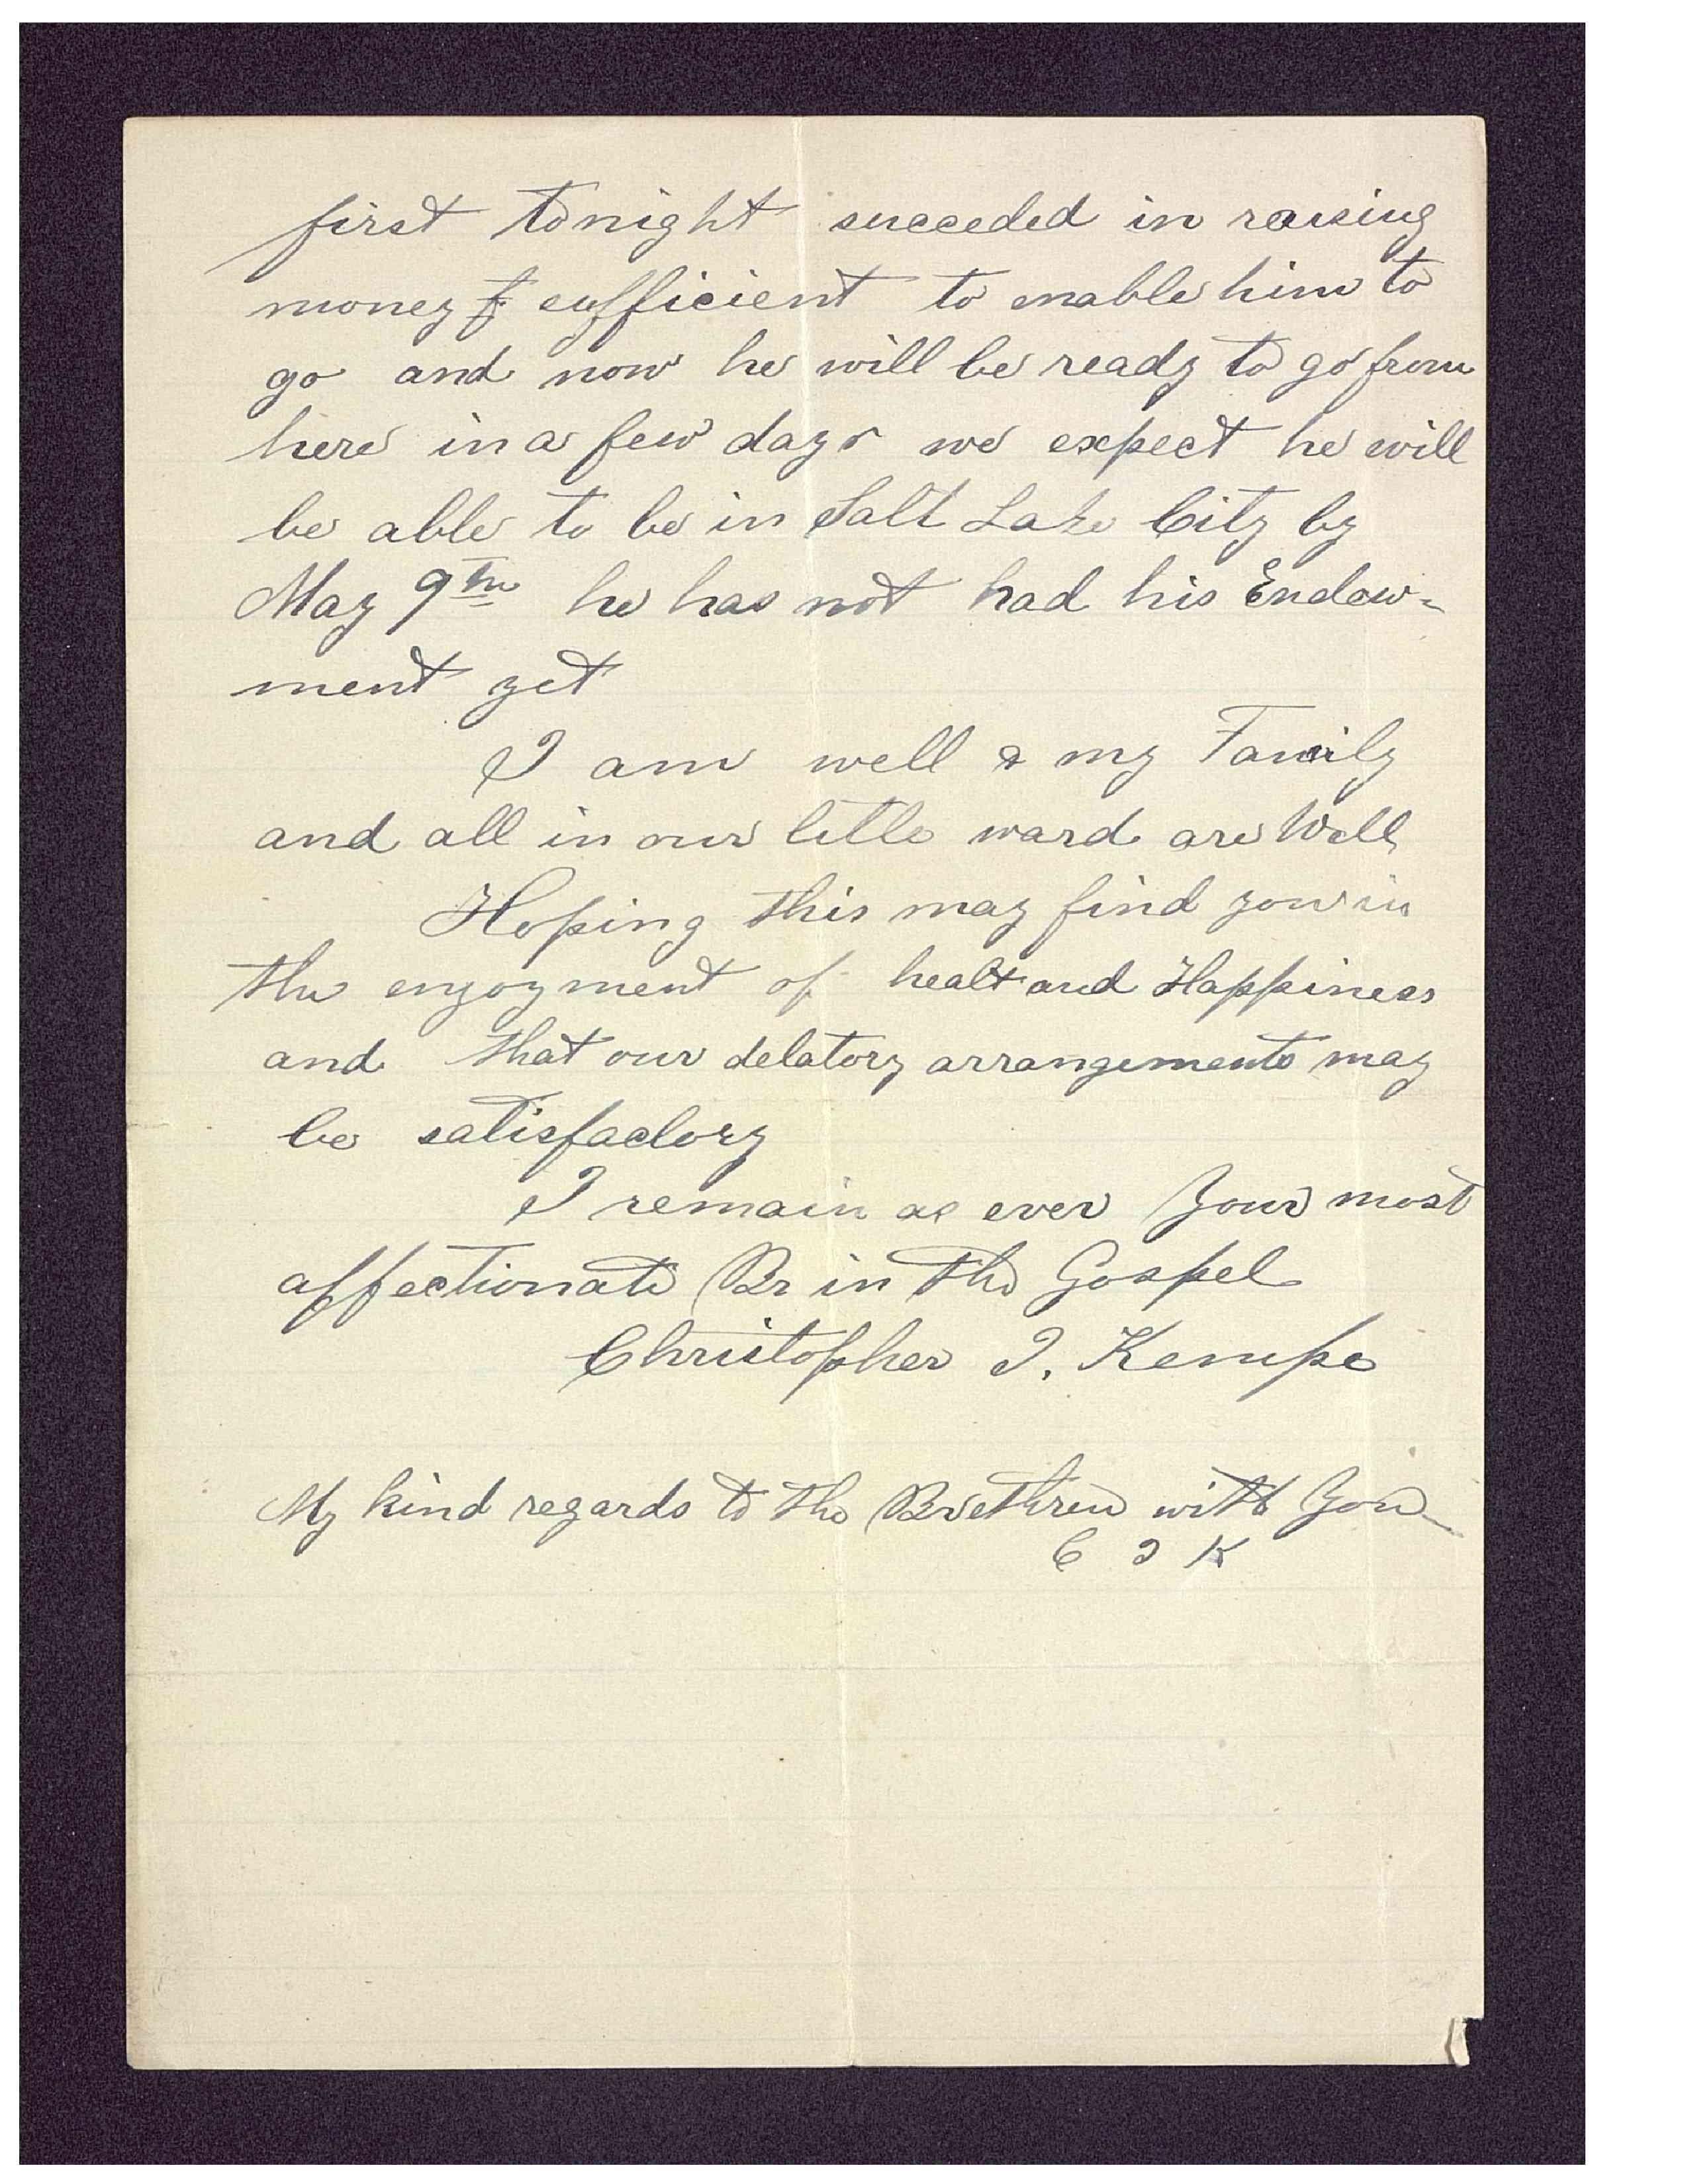 first tonight succeeded in raising
money f sufficient to enable him to
go and now he will be ready to go from
here in a few days we expect he will
be able to be in Salt Lake City by
May 9th he has not had his Endow=
ment yet
I am well & my Family
and all in our little ward are Well
Hoping this may find you in
the enjoyment of healt and Happiness
and that our delatory arrangements may
be satisfactory
I remain as ever Your most
affectionate Br in the Gospel
Christopher J. Kempe
My kind regards to the Brethren with You
C J K